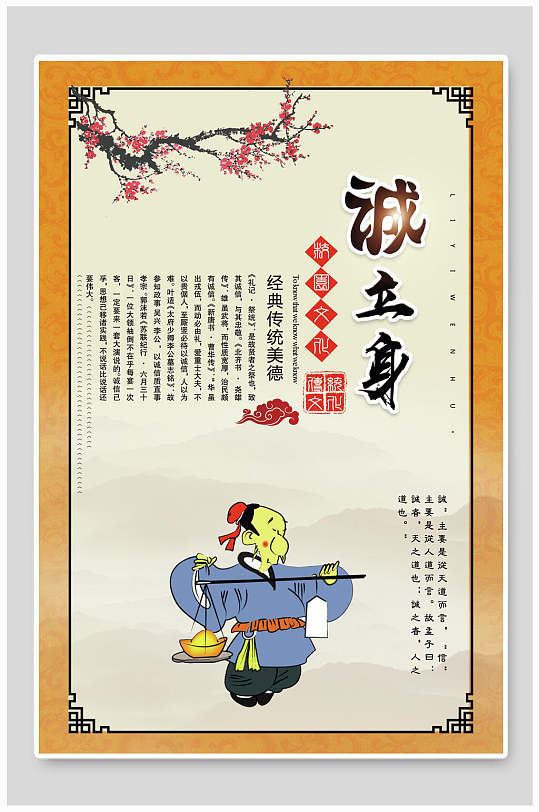 诚立身
LIYIWENHU。
校园文化
To know that we know what we know
经典传统美德
传统文化
《礼记·祭统》：是故贤者之祭也，致
其诚信，与其忠敬。《北齐书·尧雄
传》：雄虽武将，而性质宽厚，治民颇
有诚信。《新唐书·曹华传》：华虽
出戎伍，而动必由礼，爱重士大夫，不
以贵倨人，至厮竖必待以诚信，人以为
难。叶适《太府少卿李公墓志铭》：故
参知政事吴兴李公，以诚信质直事
孝宗。郭沫若《苏联纪行·六月三十
日》：一位大领袖倒不在乎每宴一次
客，一定要来一套大演说的。诚信已
乎，思想己移诸实践，不说话比说话还
要伟大。
誠”主要是從天道而言，“信”
主要是從人道而言。故孟子曰：
誠者，天之道也；誠之者，人之
道也。”